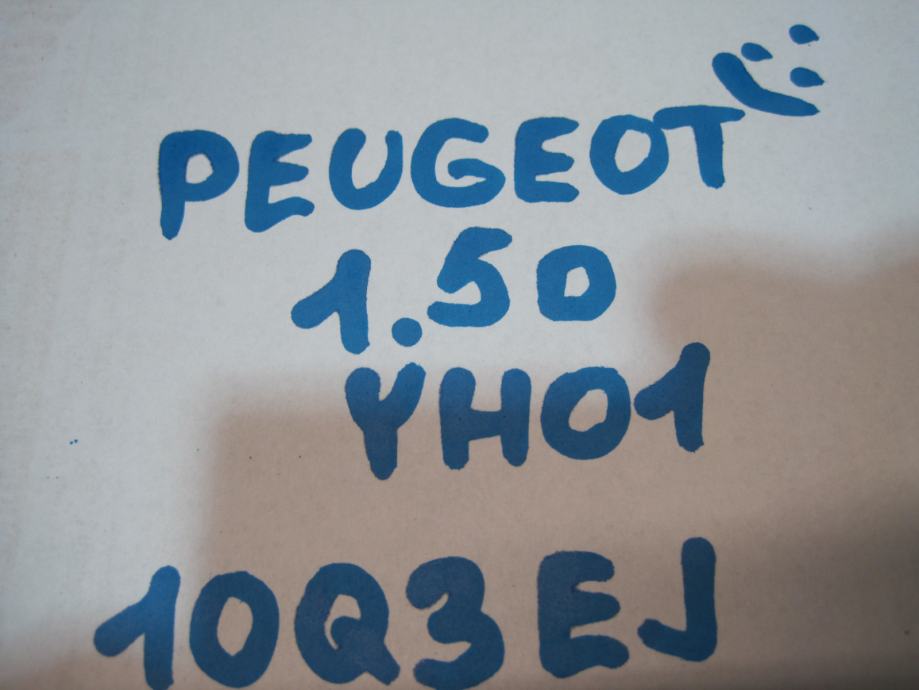 PEUGEOT
1.5D
YH01
10Q3EJ